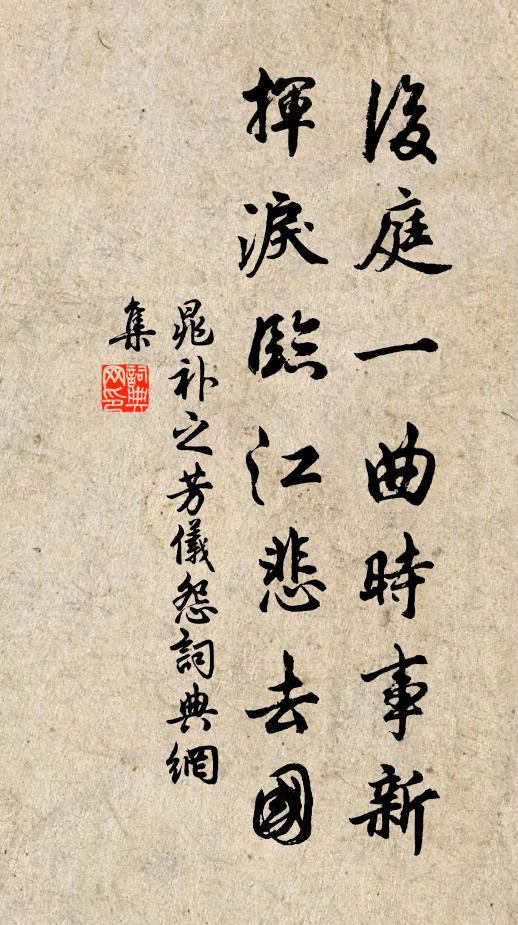 後庭一曲時事新
揮淚臨江悲去國
晁補之芳儀怨詞典網
集
詞典
网印